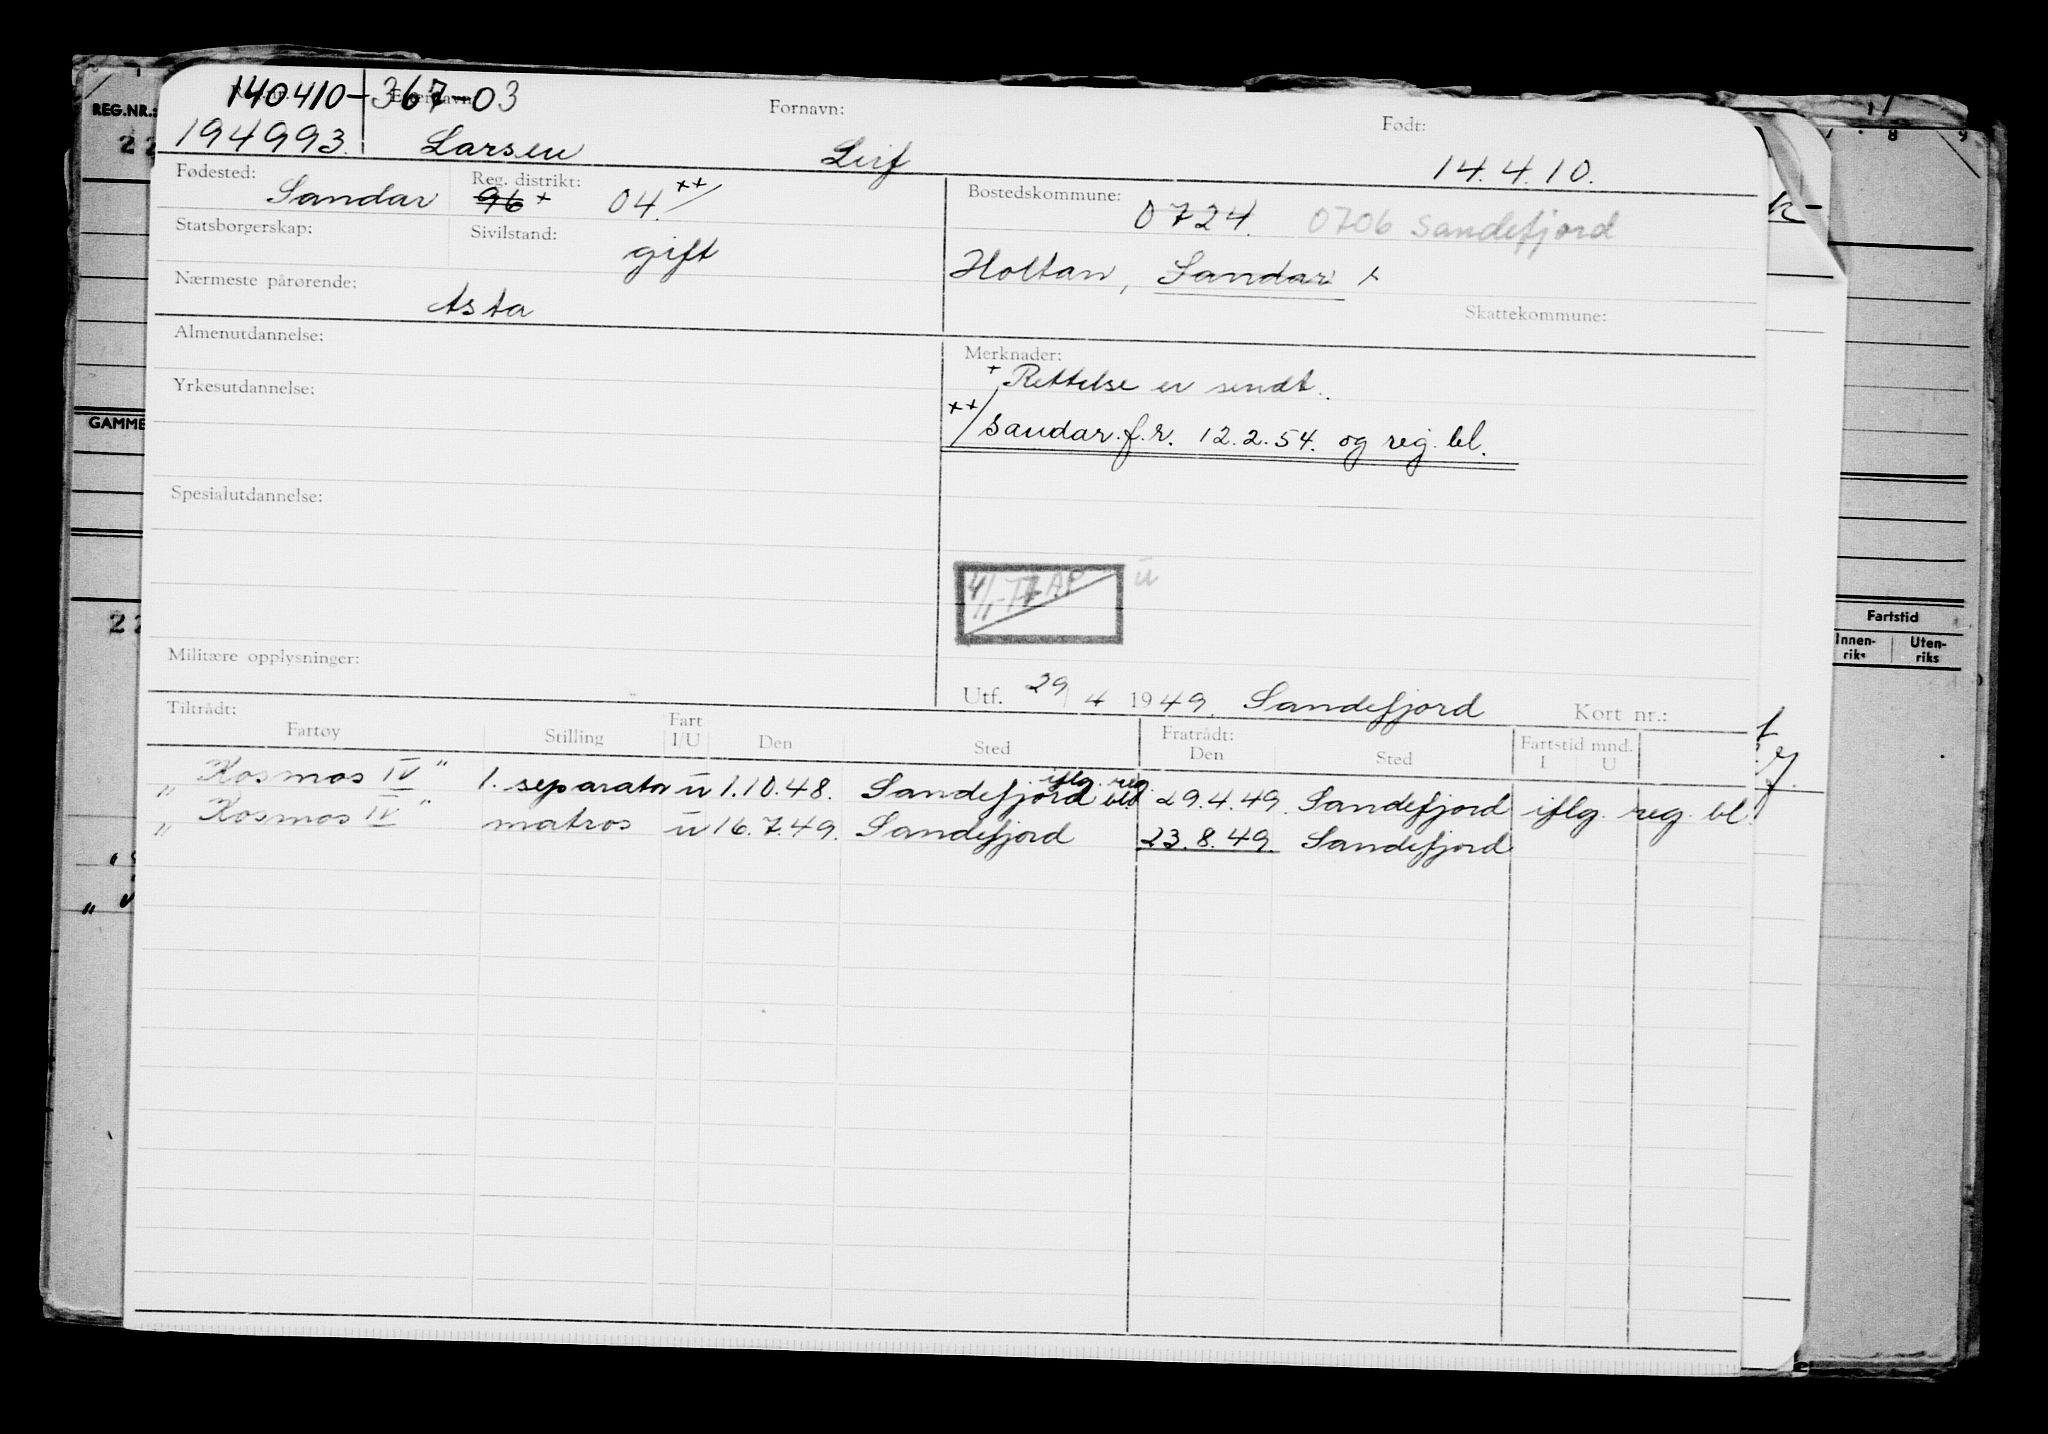 140410-367-03
REG.NR.: Fornavn: Født:
194993. Larsen Leif 14.4.10.
Fødested: Sandar Reg. distrikt: 96 + 04 ++/ Bostedskommune: 0724. 0706 Sandefjord
Statsborgerskap: Sivilstand: gift Holtan, Sandar x
Nærmeste pårørende: Asta Skattekommune:
Almenutdannelse: Merknader:
+ Rettelse er sendt.
Yrkesutdannelse:
++/ Sandar f.r. 12.2.54. og reg. bl.
GAMME
Spesialutdannelse:
ū
Fartstid
Innen-riks Uten-riks
Militære opplysninger:
Utf. 29/4 1949. Sandefjord Kort nr.:
Tiltrådt: Fratrådt:
Fartøy Stilling Fart I/U Den Sted Den Sted Fartstid mnd. I U
"Kosmos IV" 1. separator ū 1.10.48. Sandefjord iflg. reg. bl. 29.4.49. Sandefjord iflg. reg. bl.
"Kosmos IV" matros ū 16.7.49. Sandefjord 23.8.49. Sandefjord